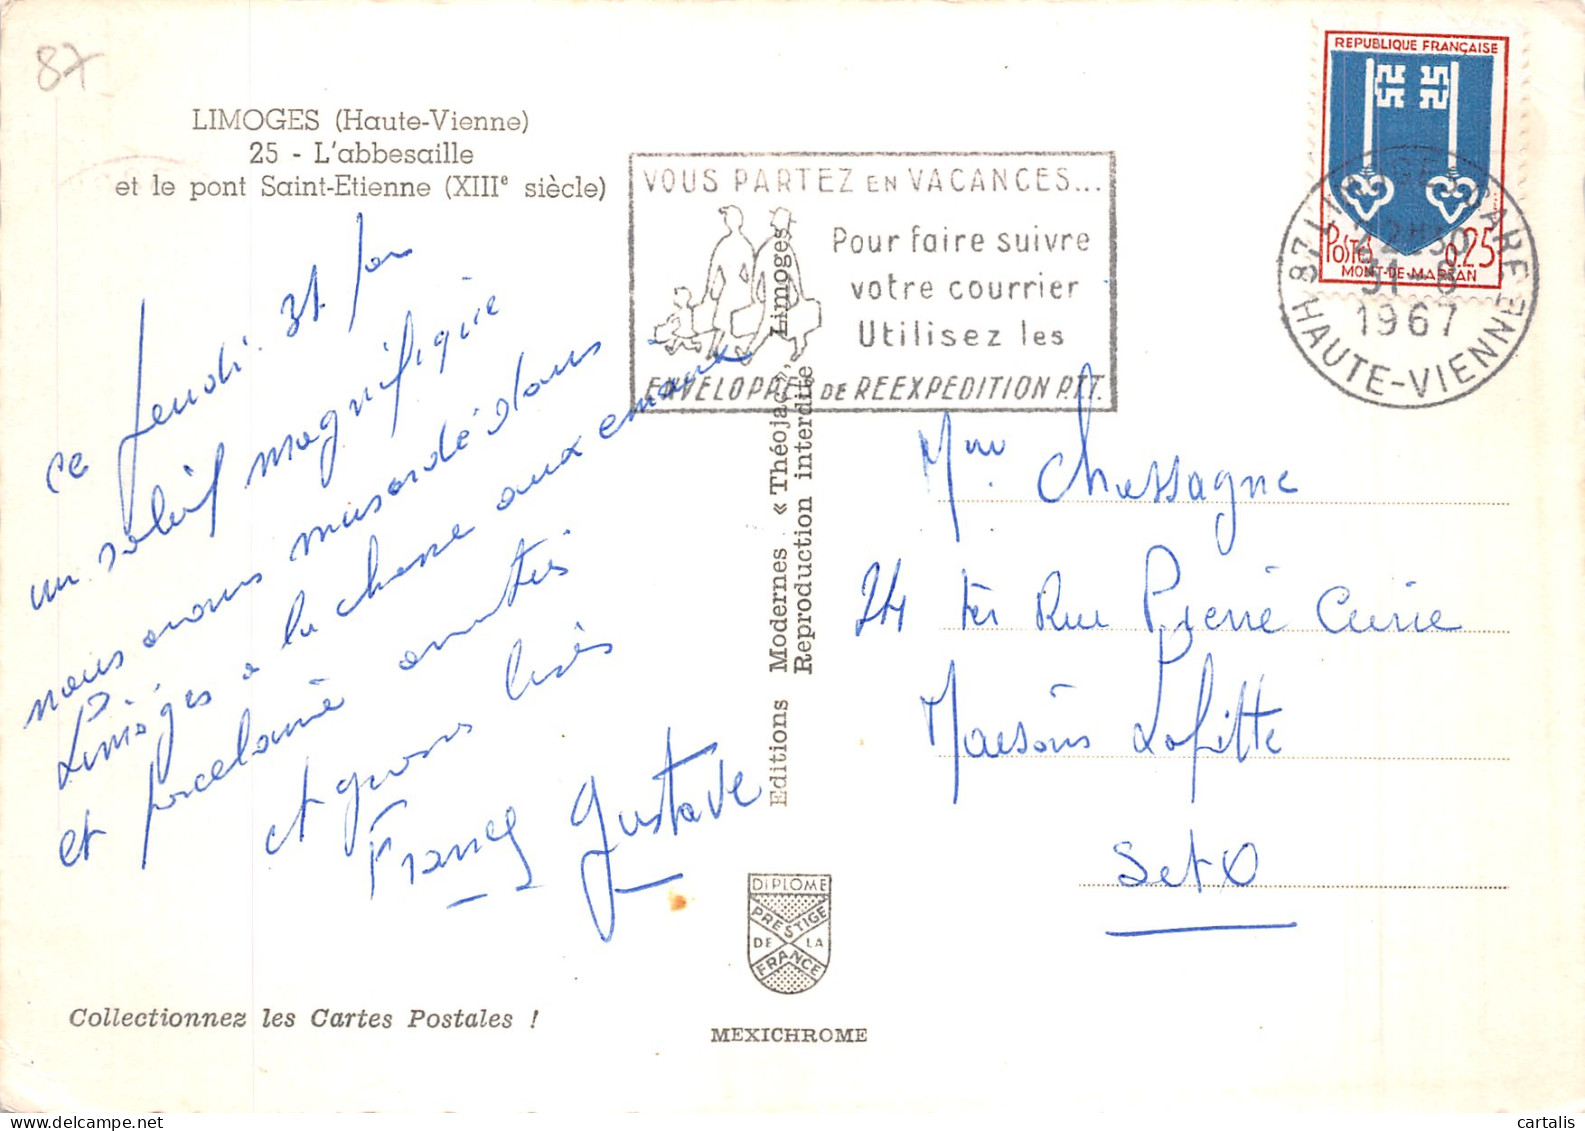 87
LIMOGES (Haute-Vienne)
25 - L'abbesaille
et le pont Saint-Etienne (XIIIe siècle)
VOUS PARTEZ EN VACANCES...
Pour faire suivre
votre courrier
Utilisez les
ENVELOPPES DE REEXPEDITION P.T.T.
REPUBLIQUE FRANÇAISE
POSTES 0,25
MONT-DE-MARSAN
87 LIMOGES GARE
22H30
31-8
1967
HAUTE-VIENNE
ce jeudi 31 par
un soleil magnifique
nous avons musardé dans
Limoges à la chasse aux émaux
et porcelaine amitiés
et gros bisés
Francq Gustave
Editions Modernes « Théojac », Limoges
Reproduction interdite
Mme Chassagne
24 ter Rue Pierre Curie
Maisons Lafitte
Set O
DIPLOME
PRESTIGE
DE LA
FRANCE
Collectionnez les Cartes Postales !
MEXICHROME
cartalis